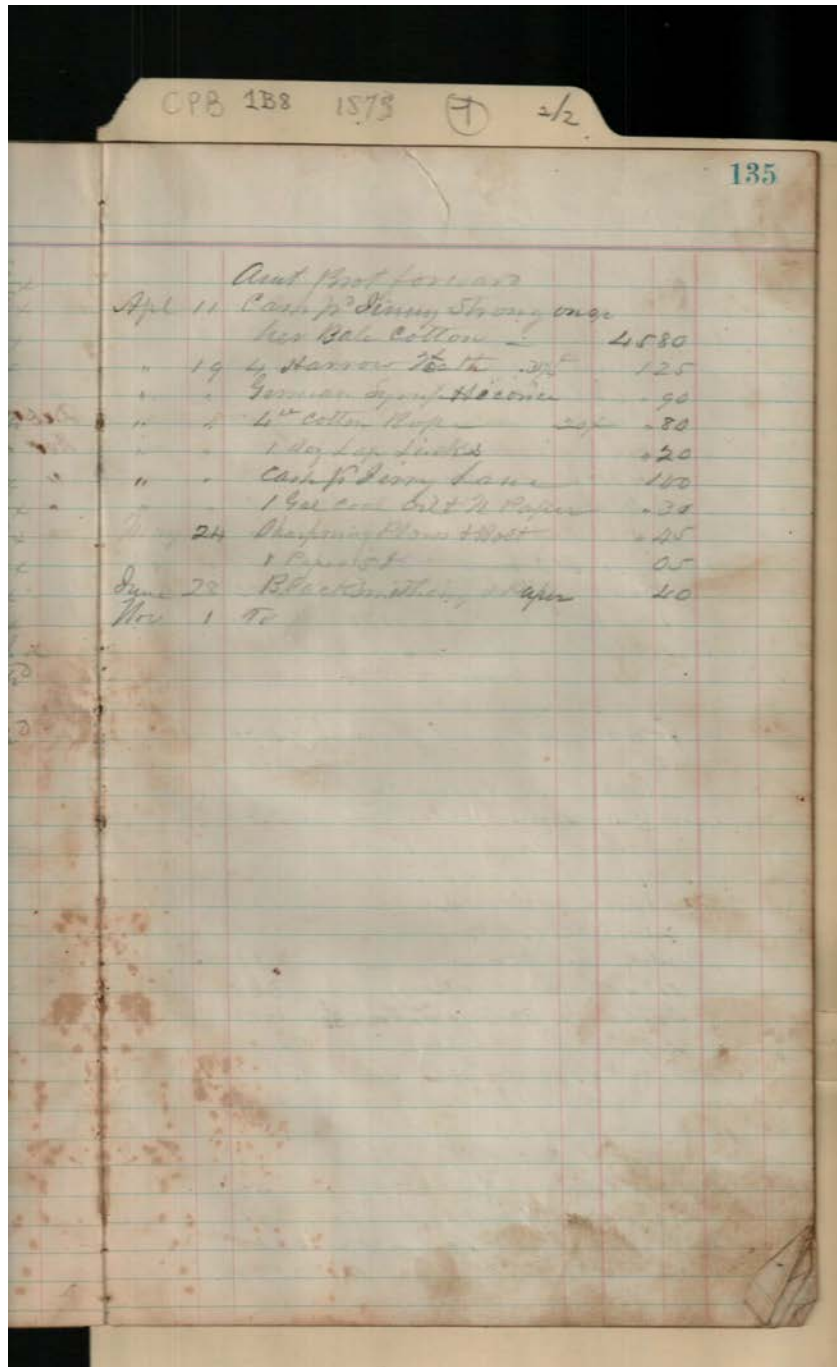 CPB 1B8 1573 1 2/2
135
Amt Brot forward
Apl 11 Cash pd Jinny Strong on
her Bale Cotton 45 80
" 19 4 Harrow Teeth 1 25
" " German Syrup 90
" " 4 lb Cotton Rope 20 80
" " 1 doz Lap Links 20
" " Cash pd Jinny 1 00
" " 1 Gal Coal Oil & Paper 30
24 Sharpening Plows & Bolt 45
1 Paper 05
June 28 Blacksmithing Paper 40
Nov 1 To